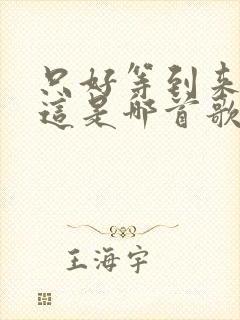 只好等到来
這是哪首歌
王海宇